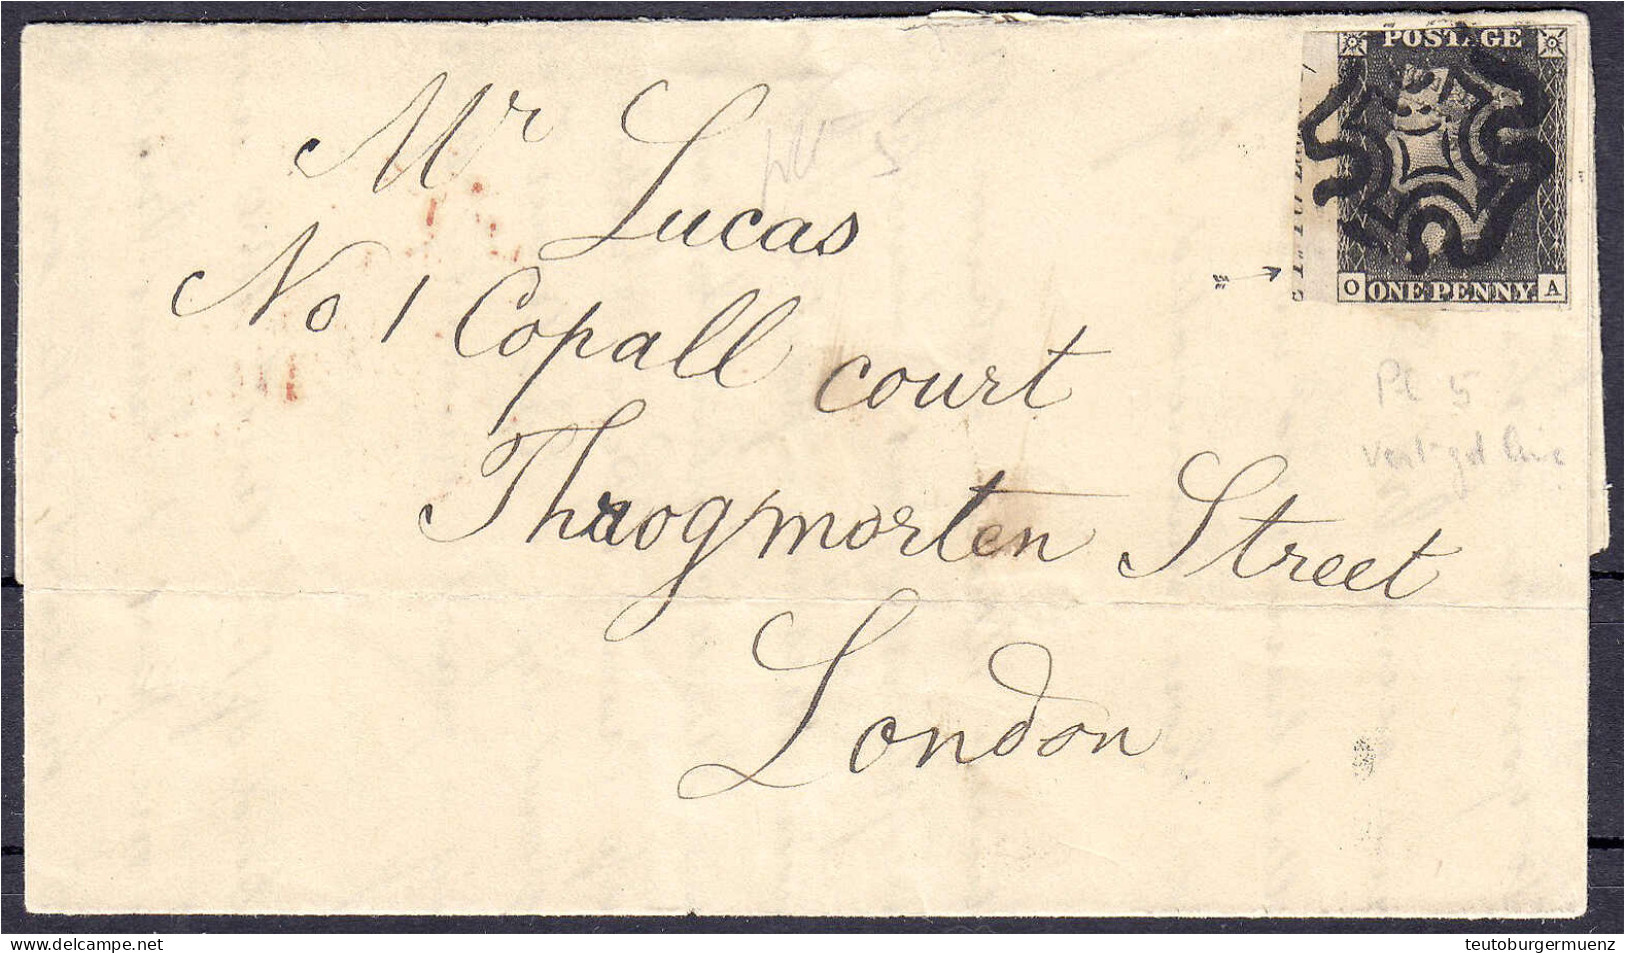 POSTAGE
O ONE PENNY A
Mr Lucas
No 1 Copall court
Throogmorten Street
London
Pl 5
5
delcampe.net
teutoburgermuenz